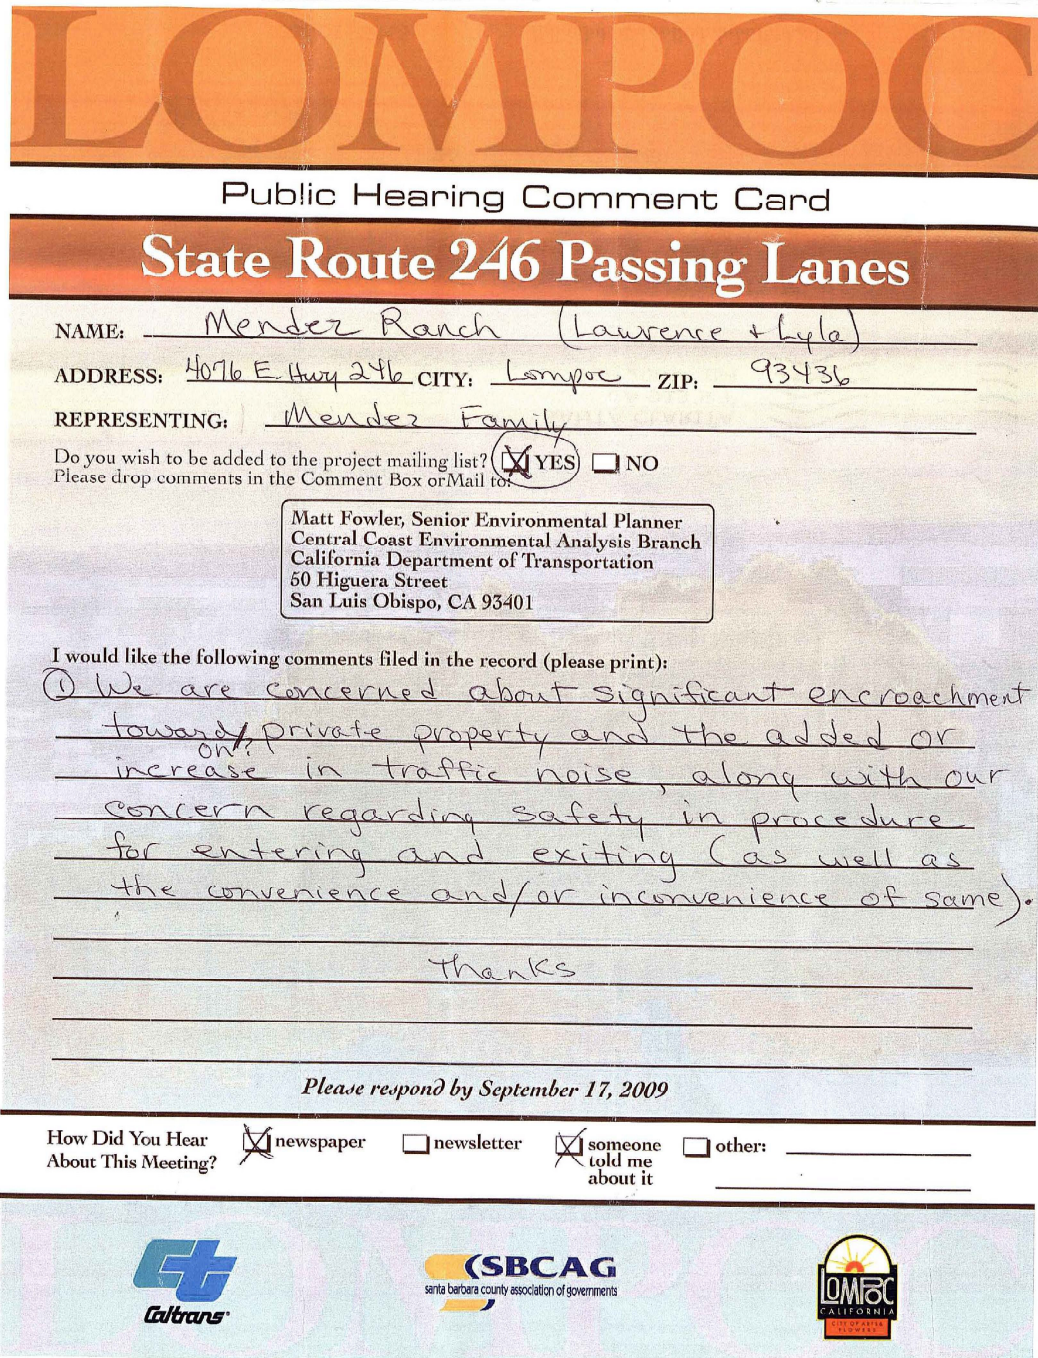 LOMPOC
Public Hearing Comment Card
State Route 246 Passing Lanes
NAME: Mendez Ranch (Lawrence + Lyla)
ADDRESS: 4076 E. Hwy 246 CITY: Lompoc ZIP: 93436
REPRESENTING: Mendez Family
Do you wish to be added to the project mailing list? YES NO
Please drop comments in the Comment Box or Mail to:
Matt Fowler, Senior Environmental Planner
Central Coast Environmental Analysis Branch
California Department of Transportation
50 Higuera Street
San Luis Obispo, CA 93401
I would like the following comments filed in the record (please print):
① We are concerned about significant encroachment
toward/ private property and the added or
on?
increase in traffic noise, along with our
concern regarding safety in procedure
for entering and exiting (as well as
the convenience and/or inconvenience of same).
Thanks
Please respond by September 17, 2009
How Did You Hear newspaper newsletter someone other:
About This Meeting? told me
about it
Caltrans
SBCAG
santa barbara county association of governments
LOMPOC
CALIFORNIA
CITY OF ARTS &
FLOWERS